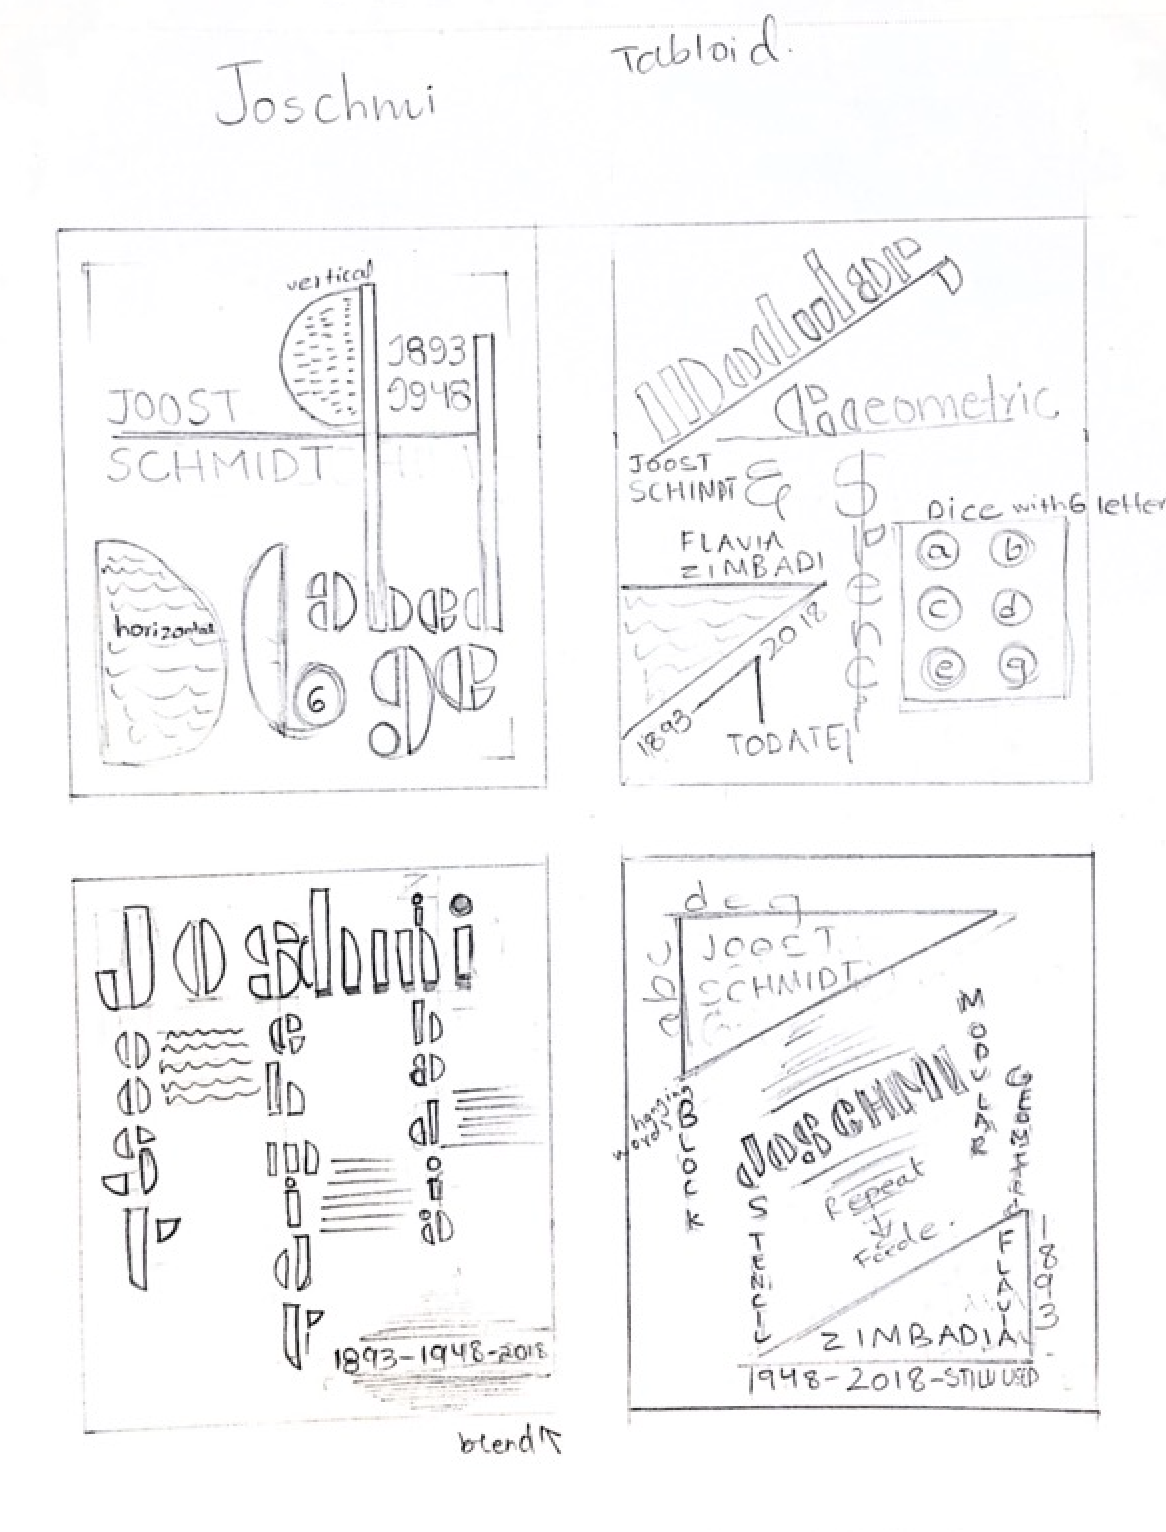 Joschmi
Tabloid.
vertical
1893
1948
JOOST
SCHMIDT
horizontal
a b c d
6
g e
Modular
Geometric
JOOST
SCHIMDT &
FLAVIA
ZIMBADI
1893-2018
TODATE
Dice with 6 letter
a b
c d
e g
Joschmi
1893-1948-2018
blend
d e g
a b c
JOOST
SCHMIDT
hanging
words
BLOCK
MODULAR
JOSCHMI
STENCIL
Repeat
Fade.
FLAVIA
1893
ZIMBADIA
1948-2018-STILL USED